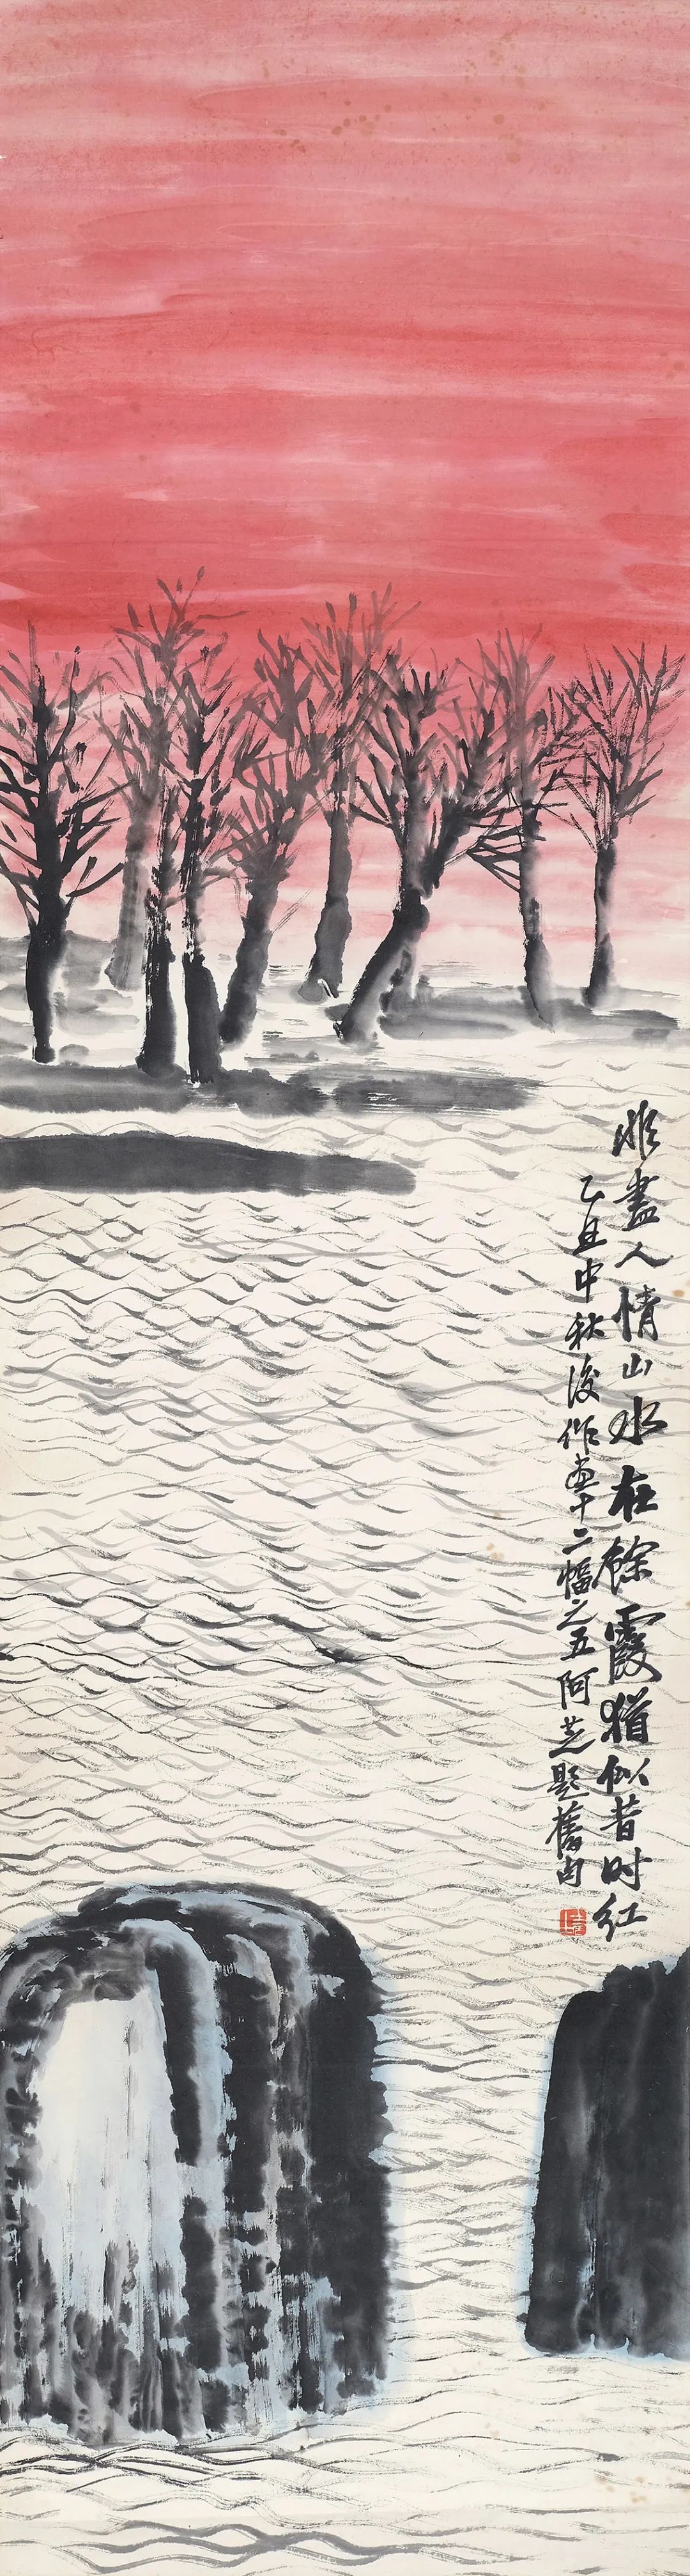 非盡人情山水在餘霞猶似昔时紅
乙丑中秋後作畫十二幅之五阿芝題舊句